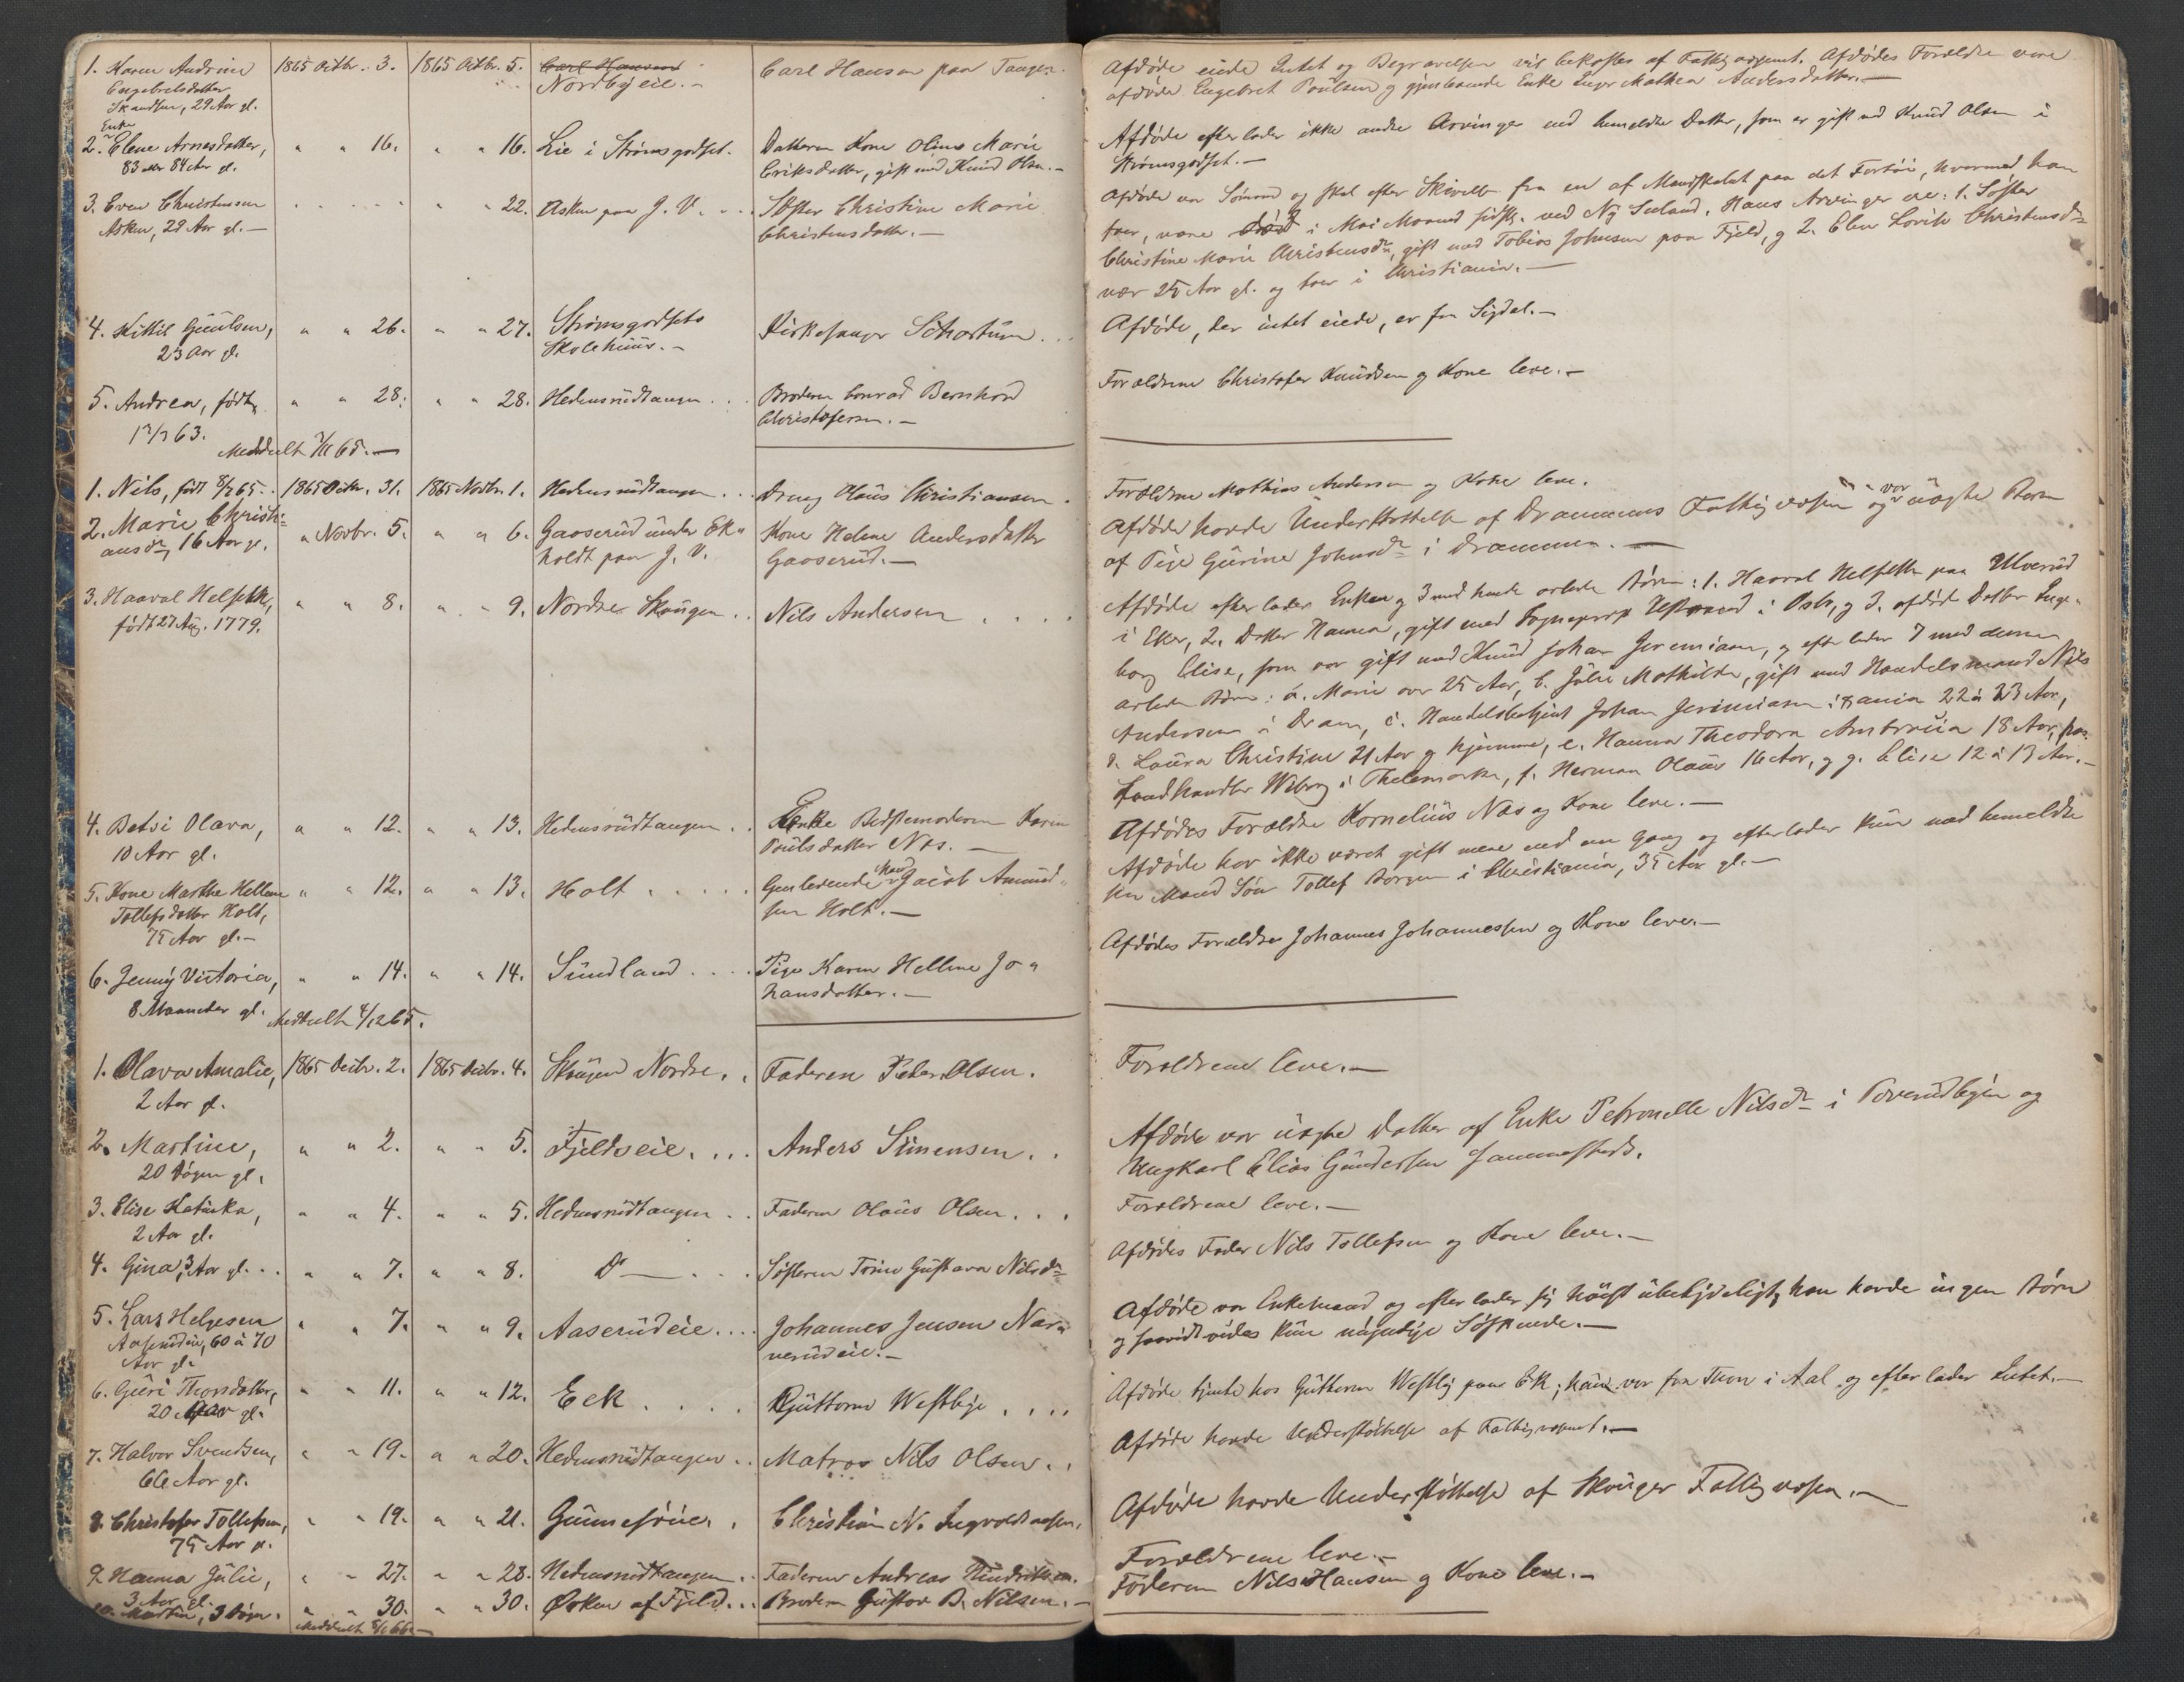 1. Karen Andrine 1865 Octbr. 3. 1865 Octbr. 5. Carl Hansen Carl Hansen paa Tangen.
Engebretsdatter Nordbyeie.-
Skandsen, 29 Aar gl.
Enke
2. Elene Arnesdatter, " " 16. " " 16. Lie i Strømsgodset. Datteren Kone Oline Marie
83 eller 84 Aar gl. Eriksdatter, gift med Knud Olsen.-
3. Even Christensen " 22. Asken paa J. V. Søster Christine Marie
Asken, 29 Aar gl.- Christensdatter.-
4. Kittil Guulsen, " " 26. " " 27. Strømsgodsets Kirkesanger Schartum
23 Aar gl. Skolehuus.-
5. Andrea, født " " 28. " " 28. Hedensrudtangen Broderen Conrad Bernhard
1863. Christofersen.-
Meddeelt 65.-
1. Nils, født 65. 1865 Octbr. 31. 1865 Novbr. 1. Hedensrudtangen Dreng Olaus Christiansen.
2. Marie Christi- " Novbr. 5. " " 6. Gaaserud under Ek- Kone Helene Andersdatter
ansdr, 16 Aar gl. holdt paa J. V. Gaaserud.-
3. Haaval Helsette, " " 8. " " 9. Nordre Skougen Nils Andersen
født 27 Aug. 1779.
4. Betsi Olava, " " 12. " " 13. Hedensrudtangen Enke Bedstemoderen Karen
10 Aar gl. Paulsdatter Næs.-
5. Kone Marthe Hellene " " 12. " " 13. Holt Genlevende Jacob Amund-
Tollefsdatter Holt, sen Holt.-
75 Aar gl.-
6. Jenny Victoria, " " 14. " " 14. Sundland Pige Karen Hellene Jo-
8 Maaneder gl. hansdatter.-
Meddeelt 4/12 65.
1. Olava Amalie, 1865 Decbr. 2. 1865 Decbr. 4. Skougen Nordre Faderen Peder Olsen.
2 Aar gl.
2. Martine, " " 2. " " 5. Fjeldseie Anders Simensen
20 Døgn gl.
3. Elise Katinka, " " 4. " " 5. Hedensrudtangen Faderen Olaus Olsen
2 Aar gl.
4. Gina, 3 Aar gl. " " 7. " " 8. Do Søsteren Trine Gustava Nilsdr
5. Lars Helgesen " " 7. " " 9. Aaserudeie Johannes Jensen Nar-
Aaserudeie, 60 à 70 verudeie.-
Aar gl.
6. Guri Thorsdatter, " " 11. " " 12. Eek Guttorm Westbye
20 Aar gl.
7. Halvor Svendsen, " " 19. " " 20. Hedensrudtangen Matros Nils Olsen
66 Aar gl.
8. Christofer Tollefsen, " " 19. " " 21. Gunnesøie Christian N. Ingvoldsen
75 Aar gl.
9. Hanna Julie, " " 27. " " 28. Hedensrudtangen Faderen Andreas Hindriksen.
3 Aar gl.
10. Martin, 3 Døgn. " " 30. " " 30. Øvken af Fjeld Broderen Gustav B. Nilsen.-
Meddeelt 66
Afdøde eiede Intet og Begravelsen vil bekostes af Fattigvæsenet. Afdødes Forældre vare
afdøde Engebret Poulsen og gjenlevende Enke Inger Mathea Andersdatter.-
Afdøde efterlader ikke andre Arvinger end bemeldte Datter, som er gift med Knud Olsen i
Strømsgodset.-
Afdøde var Sømand og skal efter Skrivelse fra en af Mandskabet paa det Fartøi, hvormed han
foer, være død i Mai Maaned sidstl. ved Ny Seeland. Hans Arvinger ere: 1. Søster
Christine Marie Christensdr, gift med Tobias Johnsen paa Fjeld, og 2. Elen Lovise Christensdr
nær 25 Aar gl. og boer i Christiania.-
Afdøde, der intet eiede, er fra Sigdal.-
Forældrene Christofer Knudsen og Kone leve.-
Forældrene Mathias Andersen og Kone leve.
Afdøde havde Understøttelse af Drammens Fattigvæsen og var uægte Barn
af Pige Gurine Johnsdr i Drammen.-
Afdøde efterlader Enken og 3 med hende avlede Børn: 1. Haaval Helsette paa Ulverud
i Eker, 2. Datter Hanna, gift med Sogneprest i Oslo, og 3. afdød Datter Inge-
borg Elise, som var gift med Knud Johan Jeremiasen, og efterlader 7 med denne
avlede Børn: a. Marie over 25 Aar, b. Julie Mathilde, gift med Handelsmand Nils
Andersen i Dram., c. Handelsbetjent Johan Jeremiasen i Xania 22 à 23 Aar,
d. Laura Christine 21 Aar og hjemme, e. Hanna Theodora Ambrosia 18 Aar, hos
Landhandler Wiborg i Thelemarken, f. Herman Olaus 16 Aar, og g. Elise 12 à 13 Aar.-
Afdødes Forældre Kornelius Næs og Kone leve.-
Afdøde har ikke været gift mere end een Gang og efterlader kun med bemeldte
sin Mand Søn Tollef Borgen i Christiania, 35 Aar gl.-
Afdødes Forældre Johannes Johannessen og Kone leve.-
Forældrene leve.-
Afdøde var uægte Datter af Enke Petronelle Nilsdr i Poverudbyen og
Ungkarl Elias Gundersen sammesteds.
Forældrene leve.-
Afdødes Fader Nils Tollefsen og Kone leve.-
Afdøde var Enkemand og efterlader sig høist ubetydeligt, han havde ingen Børn
og saavidt vides kun umyndige Søskende.-
Afdøde tjente hos Guttorm Westby paa Ek; hun var fra Thon i Aal og efterlader Intet.-
Afdøde havde Understøttelse af Fattigvæsenet.-
Afdøde havde Understøttelse af Skouger Fattigvæsen.-
Forældrene leve.-
Faderen Nils Hansen og Kone leve.-